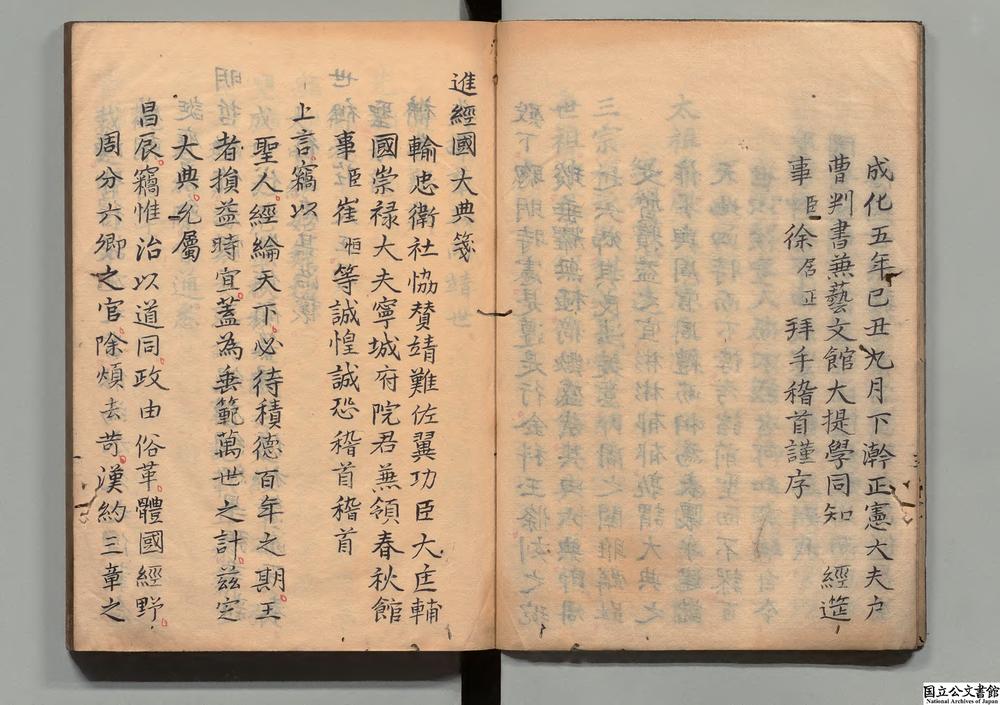 成化五年己丑九月下澣正憲大夫户
曹判書兼藝文館大提學同知 經筵
事臣徐居正拜手稽首謹序
進經國大典箋
輸忠衛社協贊靖難佐翼功臣大匡輔
國崇禄大夫寧城府院君兼領春秋館
事臣崔恒等誠惶誠恐稽首稽首
上言竊以
聖人經綸天下必待積德百年之期王
者損益時宜蓋為垂範萬世之計兹定
大典允屬
昌辰竊惟治以道同政由俗革體國經野
周分六卿之官除煩去苛漢約三章之
国立公文書館
National Archives of Japan